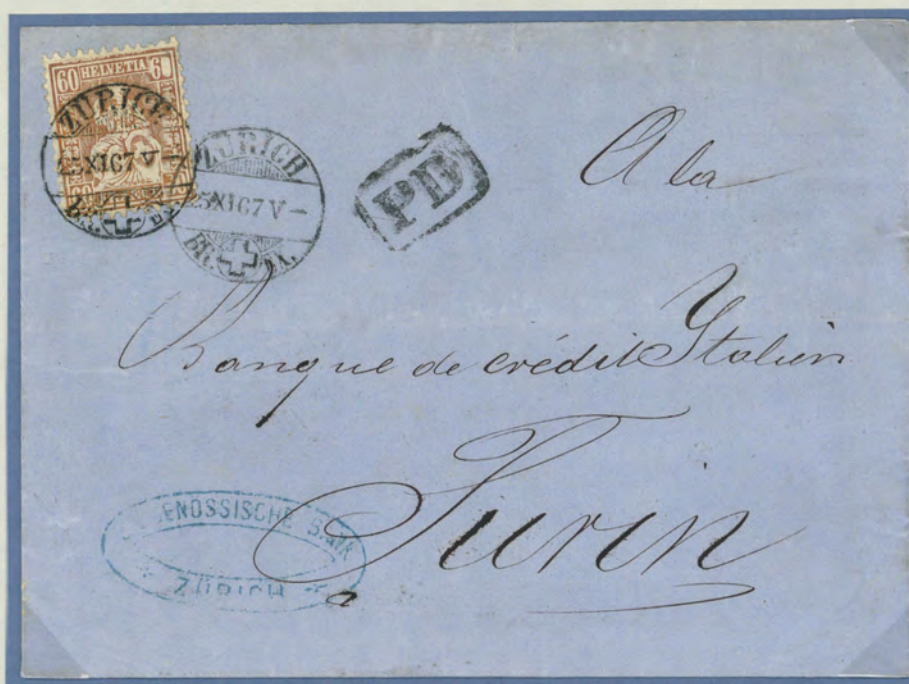 60 HELVETIA 6
ZÜRICH
25 XI 67 V -
BR. BX.
ZÜRICH
25 XI 67 V -
BR. BX.
PD
A la
Banque de crédit Italien
Turin
EIDGENÖSSISCHE BANK
ZÜRICH